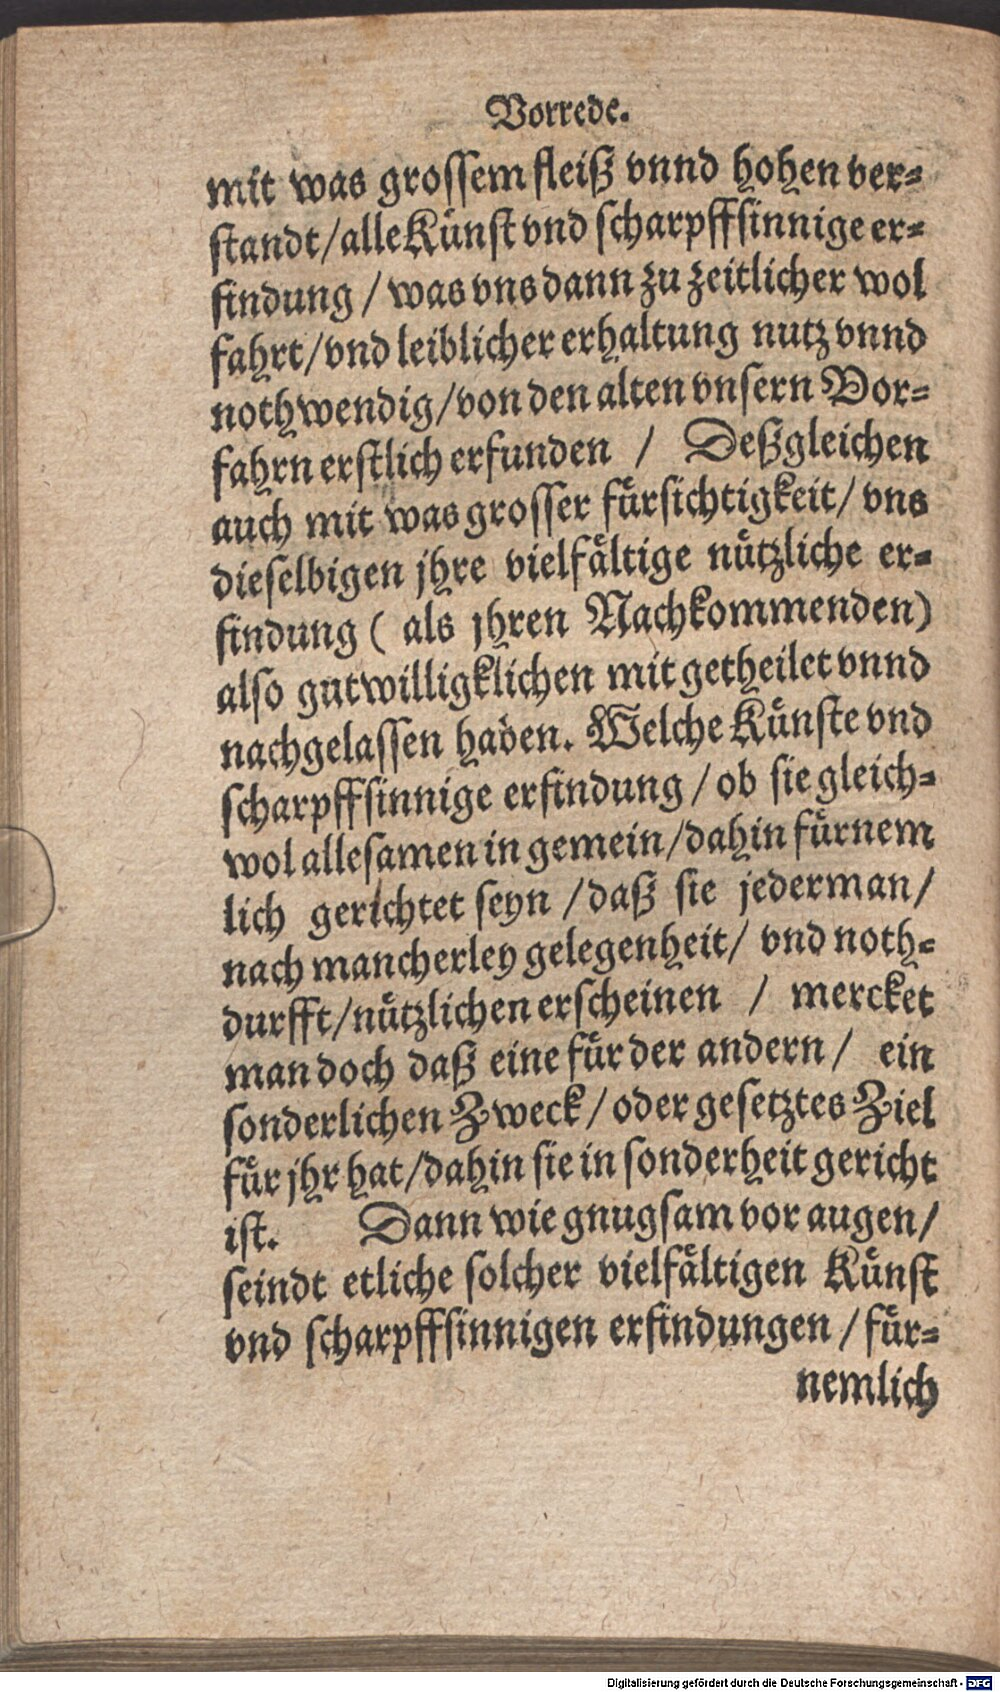 Vorrede.
mit was grossem fleiß vnnd hohen ver⸗
standt/alle Kuͤnst vnd scharpffsinnige er⸗
findung / was vns dann zu zeitlicher wol
fahrt/vnd leiblicher erhaltung nutz vnnd
nothwendig/von den alten vnsern Vor⸗
fahrn erstlich erfunden / Deßgleichen
auch mit was grosser fuͤrsichtigkeit/ vns
dieselbigen jhre vielfaͤltige nuͤtzliche er⸗
findung ( als jhren Nachkommenden)
also gutwilligklichen mit getheilet vnnd
nachgelassen haben. Welche Kuͤnste vnd
scharpffsinnige erfindung / ob sie gleich⸗
wol allesamen in gemein/dahin fuͤrnem
lich gerichtet seyn /daß sie jederman/
nach mancherley gelegenheit/ vnd noth⸗
durfft/nuͤtzlichen erscheinen / mercket
man doch daß eine fuͤr der andern / ein
sonderlichen Zweck/oder gesetztes Ziel
fuͤr jhr hat/dahin sie in sonderheit gericht
ist. Dann wie gnugsam vor augen/
seindt etliche solcher vielfaͤltigen Kuͤnst
vnd scharpffsinnigen erfindungen / fuͤr⸗
nemlich
Digitalisierung gefördert durch die Deutsche Forschungsgemeinschaft - DFG